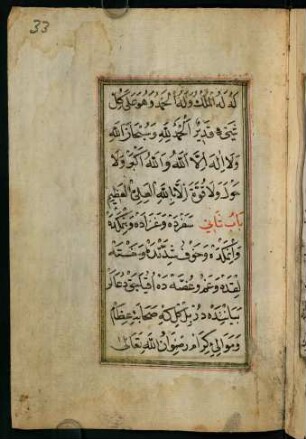 33
له له الملك وله الحمد وهو على كل
شئ قدير الحمد لله وسبحان الله
ولا اله الا الله والله اكبر ولا
حول ولا قوة الا بالله العلي العظيم
باب ثاني سفرده وغزاده و
و خوف شدتده و خسته
لقده وغم وغصه ده دعالر
بياننده در بل كل كه صحابه عظام
وموالي كرام رضوان الله تعالى